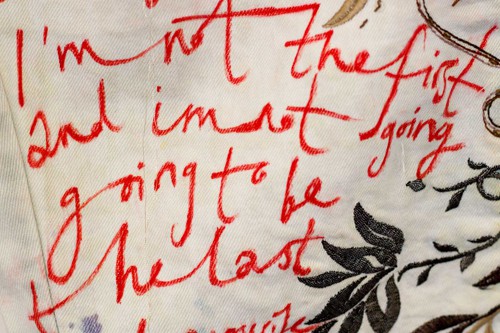 I'm not the first
and im not going
going to be
the last